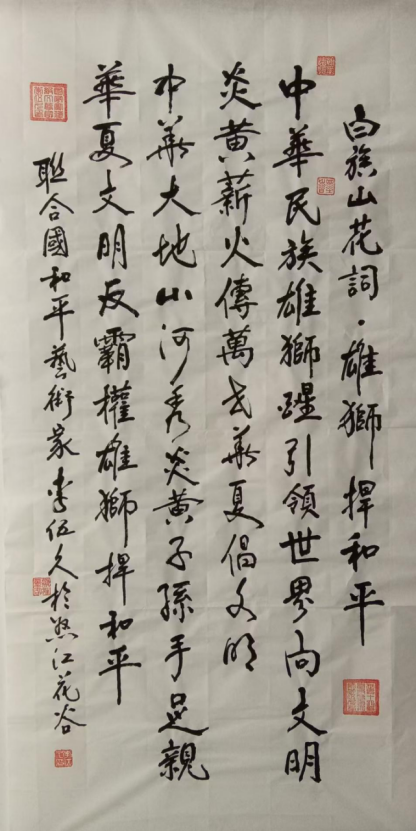 白族山花詞·雄獅捍和平
中華民族雄獅醒引領世界向文明
炎黃薪火傳萬世華夏倡文明
中華大地山河秀炎黃子孫手足親
華夏文明反霸權雄獅捍和平
聯合國和平藝術家李伍久於怒江花谷